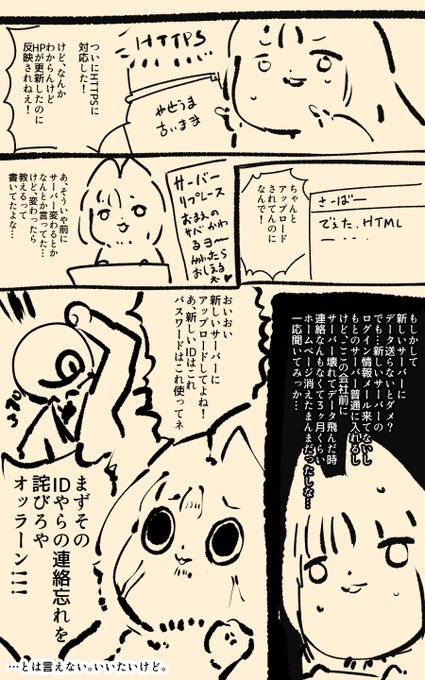 ついにHTTPSに
対応した!
けど、なんか
わからんけど
HPが更新したのに
反映されねえ!
HTTPS
やせうま
古いまま
ちゃんと
アップロード
されてんのに
なんで!
さーばー
でぇた.HTML
あ、そういや前に
サーバー変わるとか
なんとか言ってた…
けど、変わったら
教えるって
書いてたよな…
サーバー
リプレース
おまえの
サバ かわ
るヨー
かわたら
おしえる
もしかして
新しいサーバーに
データ送らないとダメ?
でも…新しいサーバーの
ログイン情報メール来てないし
もとのサーバー普通に入れるし
けど、ここの会社前に
サーバー壊れてデータ飛んだ時
連絡なんもなくて3ヶ月くらい
ホームページ消えたまんまだったしな…
一応聞いてみっか…
おいおい
新しいサーバーに
アップロードしてよね!
あ、新しいIDはこれ
パスワードはこれ使ってネ
まずその
IDやらの連絡忘れを
詫びろや
オッラーン!!!
…とは言えない。いいたいけど。